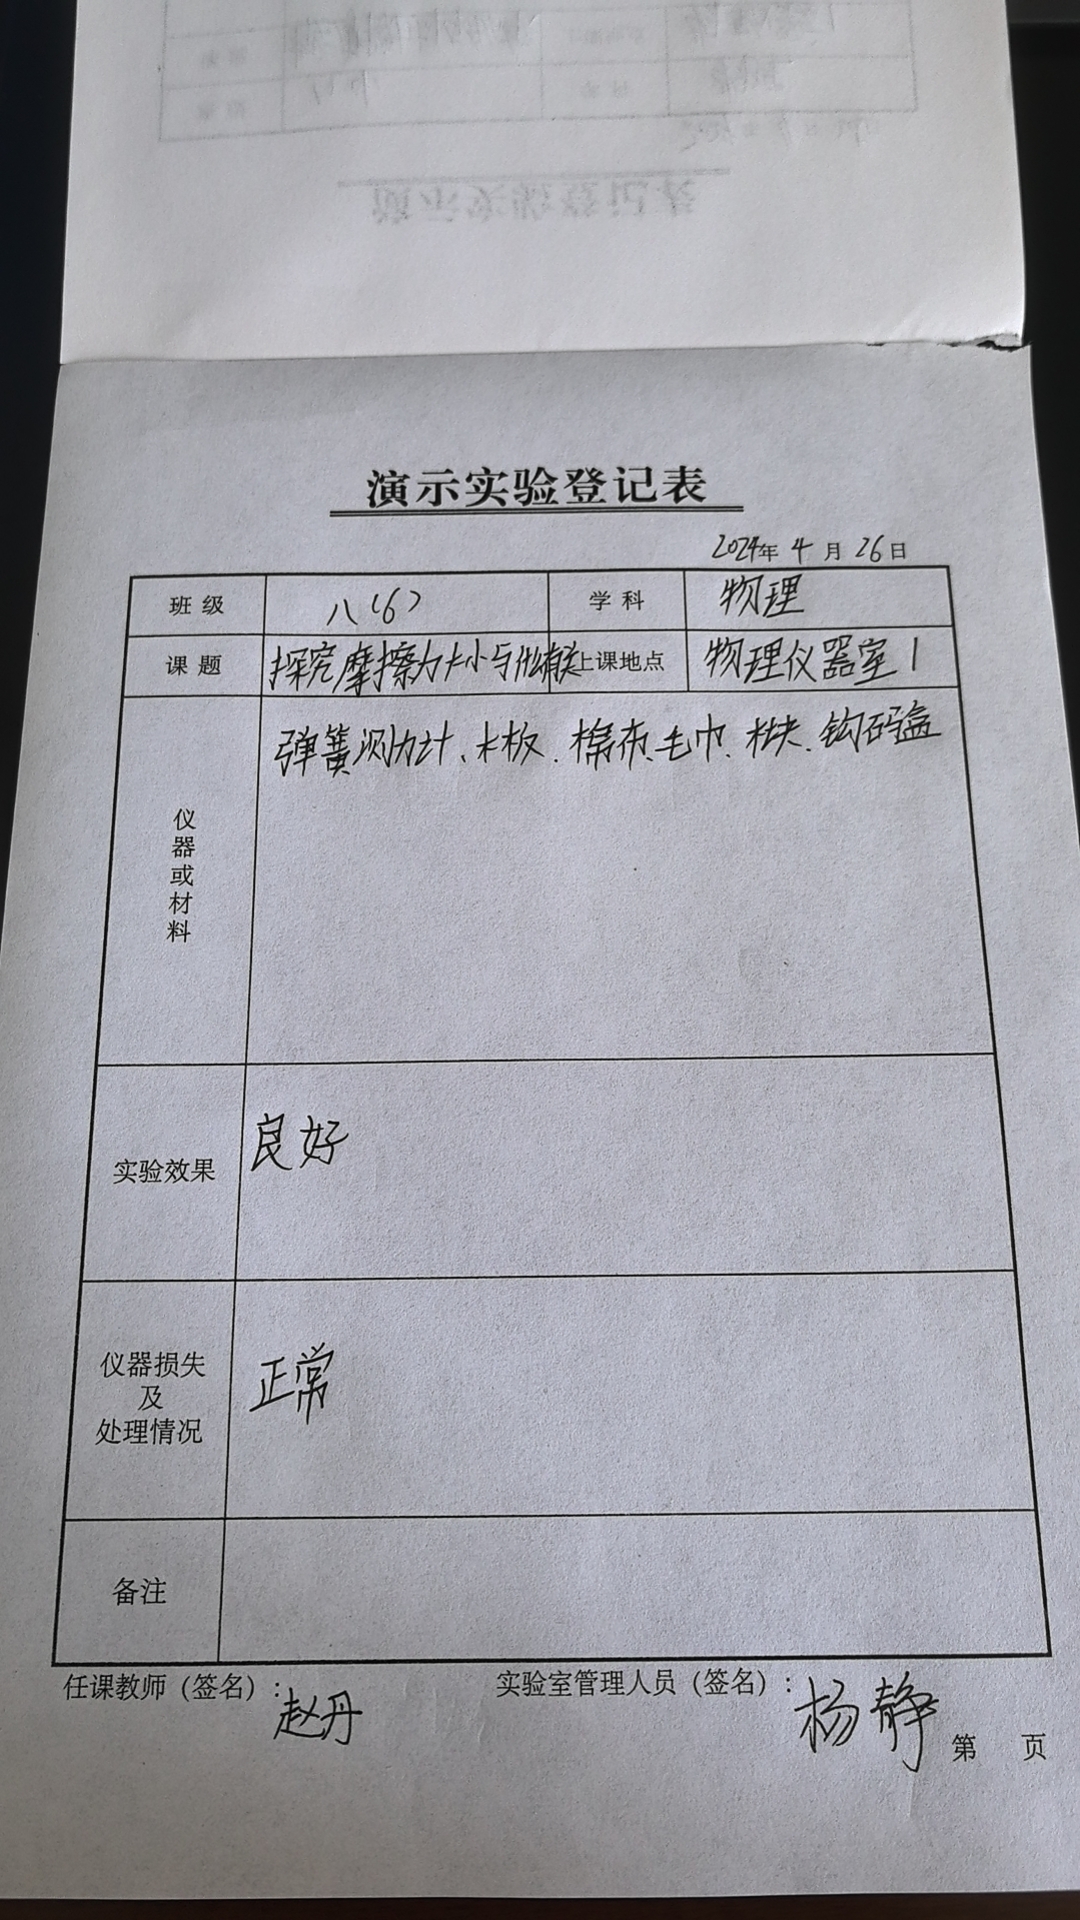 演示实验登记表
2024年 4 月 26 日
班 级 八(6) 学 科 物理
课 题 探究摩擦力大小与什么有关 上课地点 物理仪器室1
仪器或材料 弹簧测力计、木板、棉布、毛巾、木块、钩码盒
实验效果 良好
仪器损失
及
处理情况 正常
备注
任课教师（签名）：赵丹 实验室管理人员（签名）：杨静
第 页